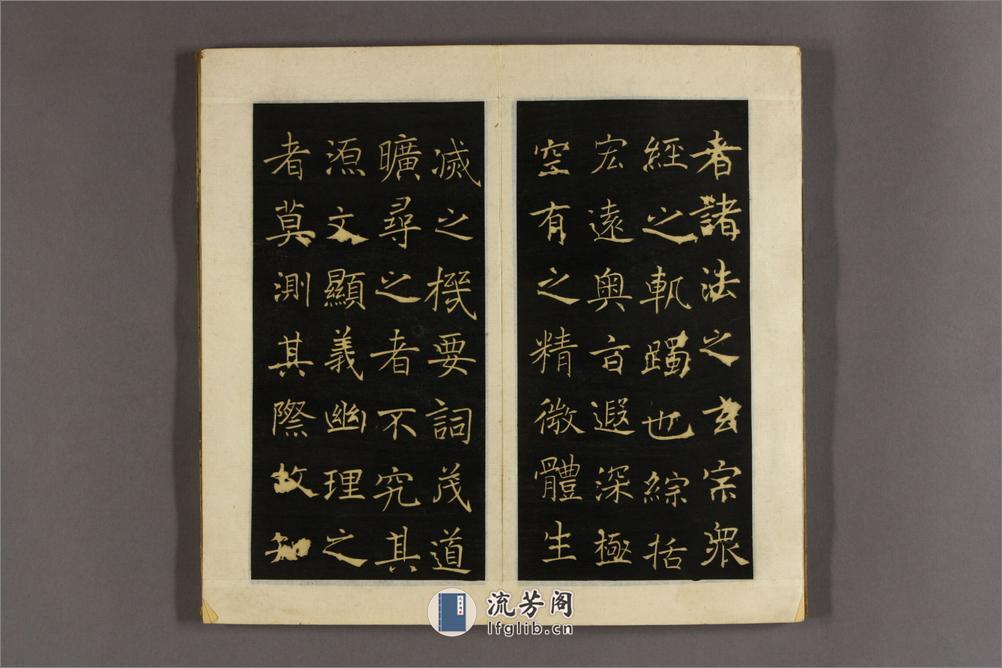 者諸法之玄宗衆
經之軌躅也綜括
宏遠奥㫖遐深極
空有之精微體生
滅之機要詞茂道
曠尋之者不究其
源文顯義幽理之
者莫測其際故知
流芳阁
lfglib.cn